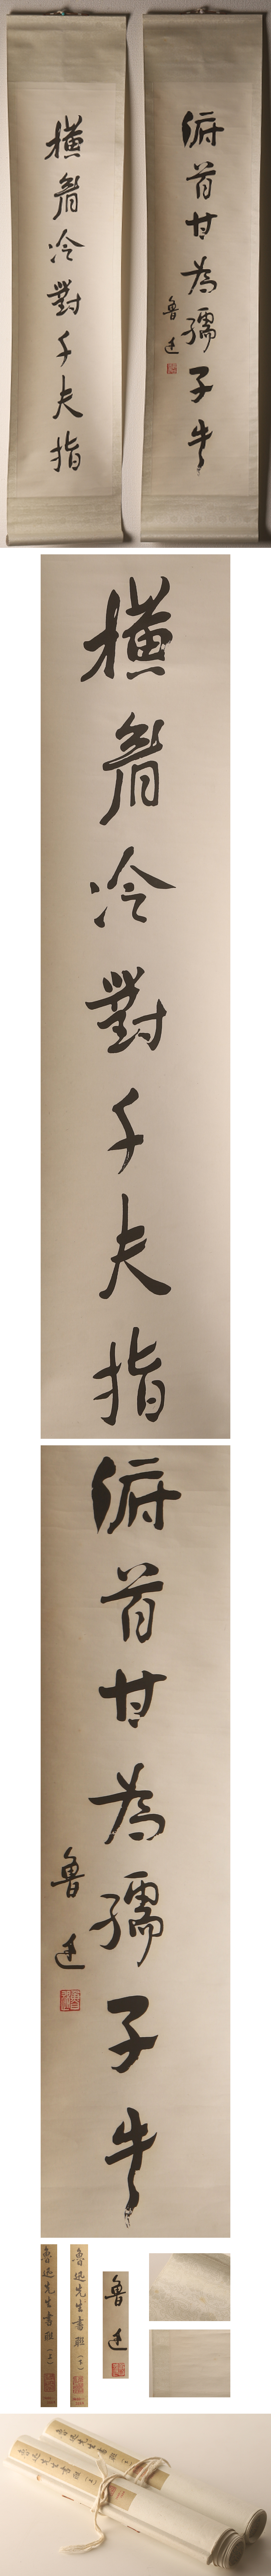 橫眉冷對千夫指
俯首甘為孺子牛
魯迅
橫眉冷對千夫指
俯首甘為孺子牛
魯迅
魯迅先生書聯（上）
魯迅先生書聯（下）
魯迅